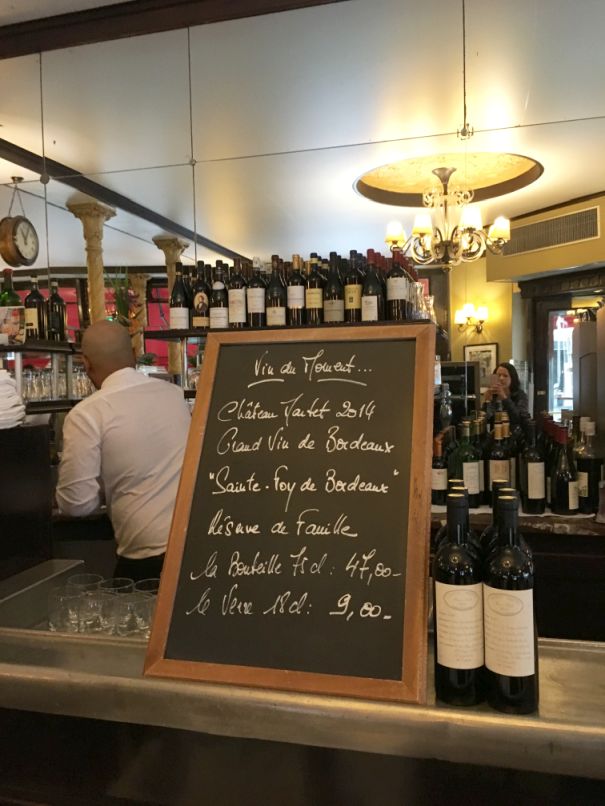 Vin du Moment...
Château Martet 2014
Grand Vin de Bordeaux
"Sainte-Foy de Bordeaux"
Réserve de Famille
la Bouteille 75cl : 47,00-
le Verre 18cl : 9,00-